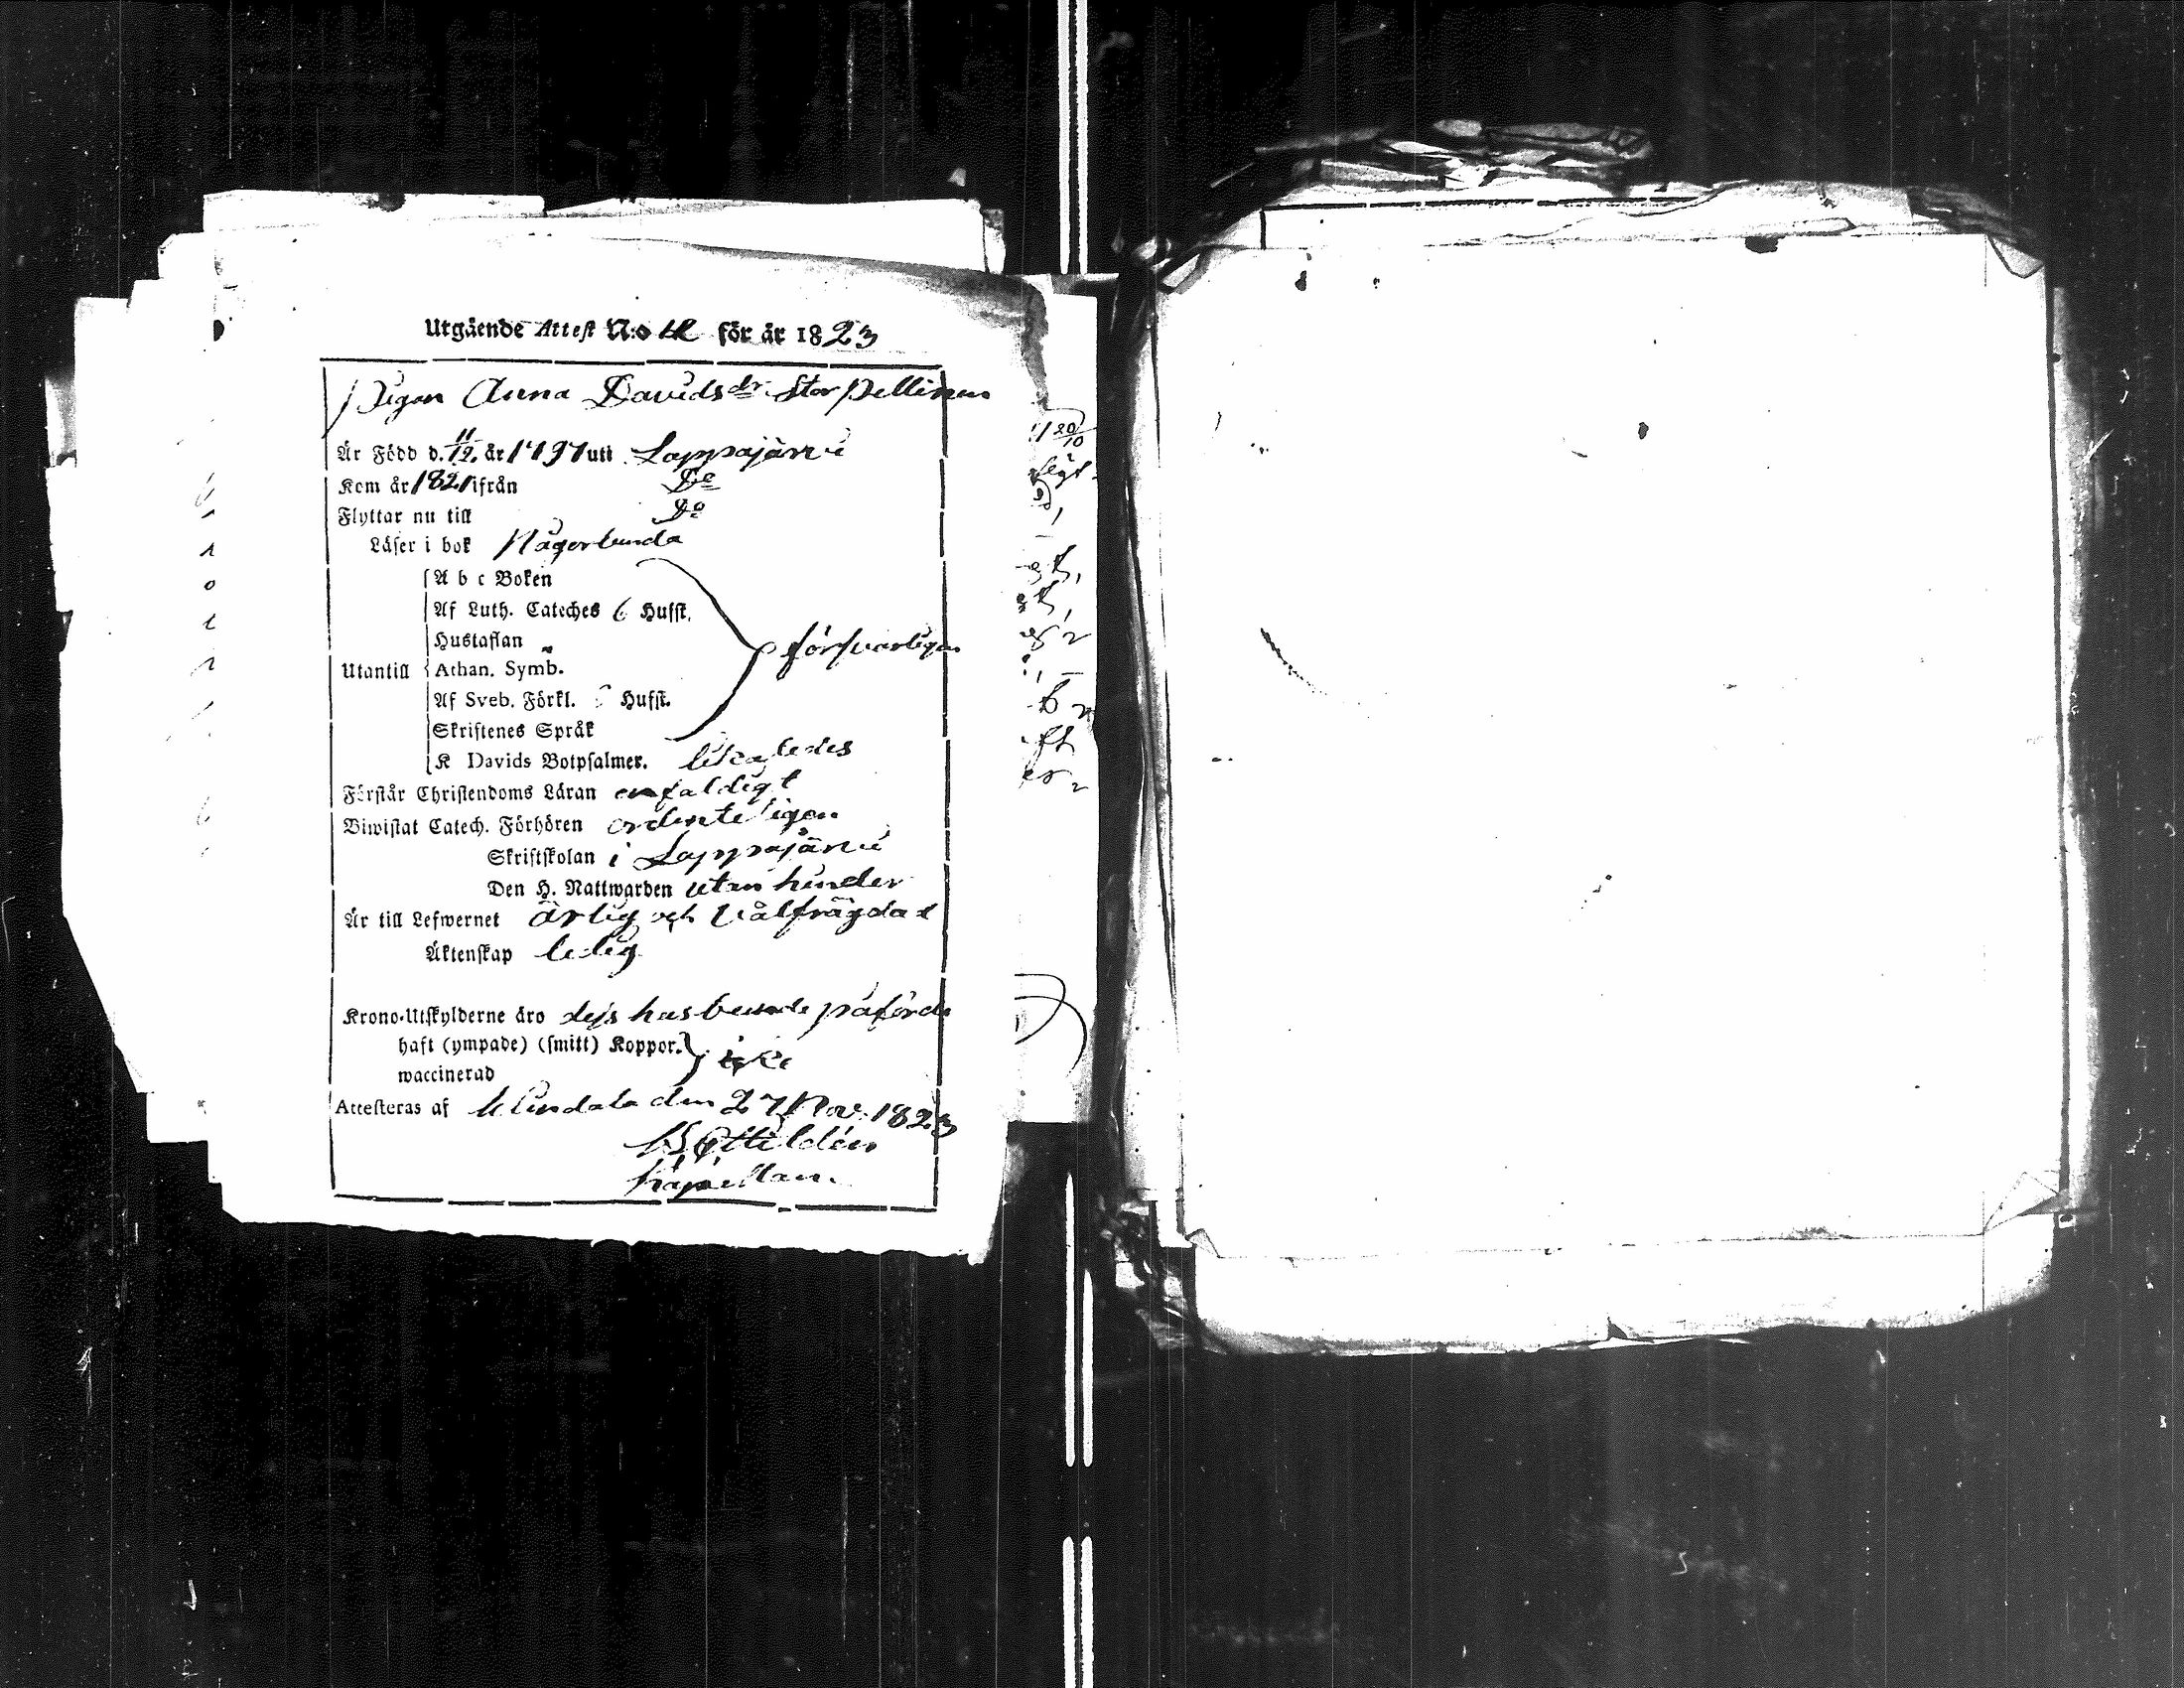 Utgående Attest N:o för år 1823
Pigan Anna Davidsdr Stor Pellinen
Är Född d. 11/12 år 1797 uti Lappajärvi
Kom år 1821 ifrån Do
Flyttar nu till Do
Läser i bok Någorlunda
A b c Boken
Af Luth. Cateches 6 Hufst.
Hustaflan
försvarligen
Utantill Athan. Symb.
Af Sveb. Förkl. Hufst.
Skriftenes Språk
K Davids Botpsalmer.
Förstår Christendoms Läran enfaldigt
Biwistat Catech. Förhören ordenteligen
Skriftskolan i Lappajärvi
Den H. Nattwarden utan hinder
Är till Lefwernet ärlig och välfrägdad
Äktenskap ledig
Krono-Utskylderne äro dess husbonde påförde
haft (ympade) (smitt) Koppor.
waccinerad
Attesteras af den 27 Nov. 1823
Kapellan.